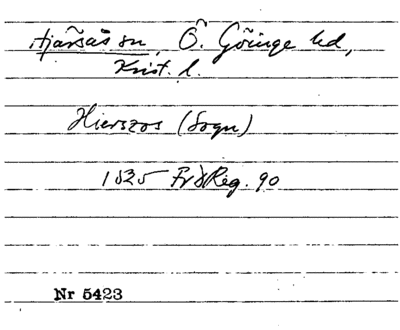 Hjärsås sn, Ö. Göinge hd,
Krist. l.
Hierszos (Sogn)
1525 Fr I Reg. 90
Nr 5423